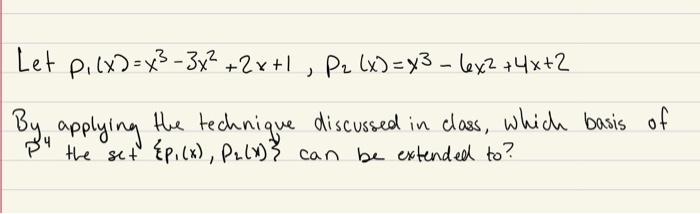 Let p₁(x)=x³-3x²+2x+1, p₂(x)=x³-6x²+4x+2
By applying the technique discussed in class, which basis of
P⁴ the set {p₁(x), p₂(x)} can be extended to?